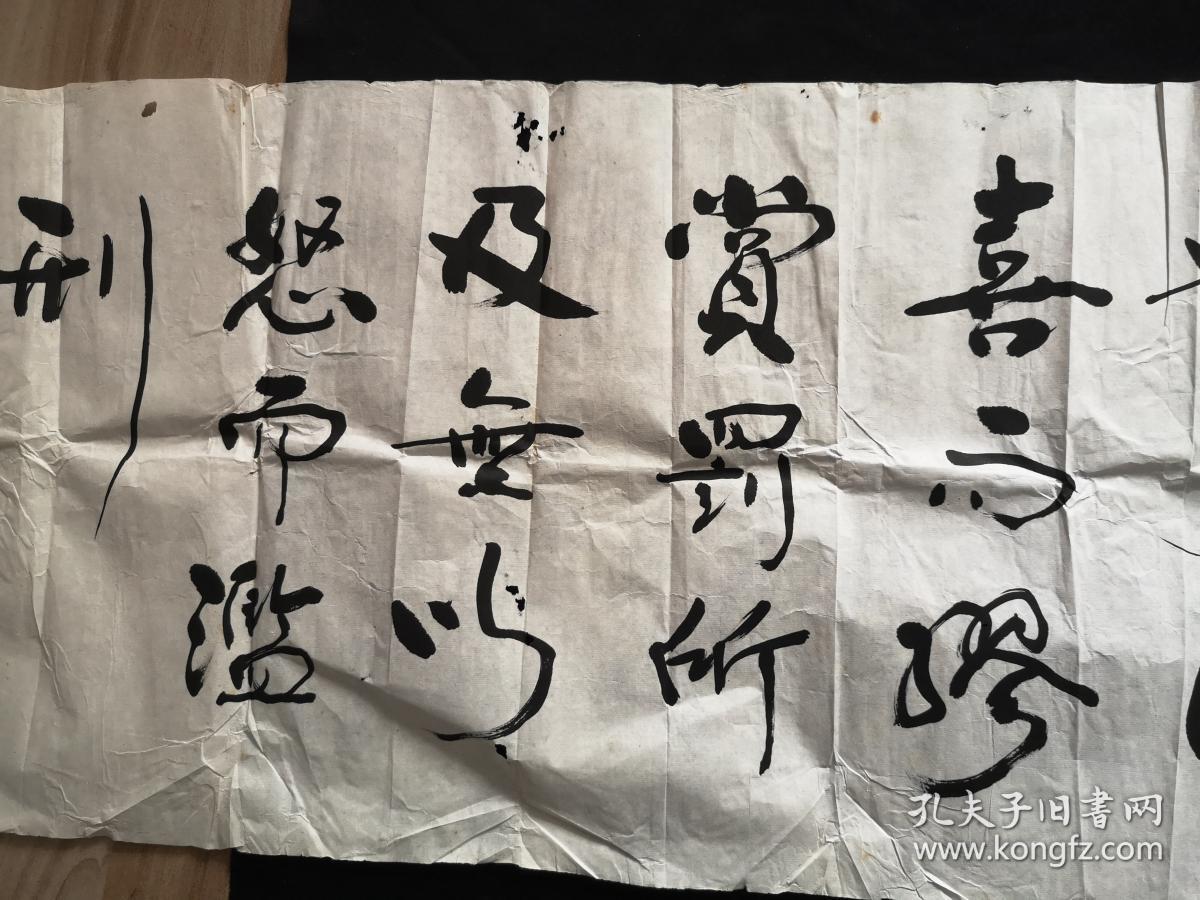 喜而謬
賞罰所
及無以
怒而濫
刑
孔夫子旧書网
www.kongfz.com